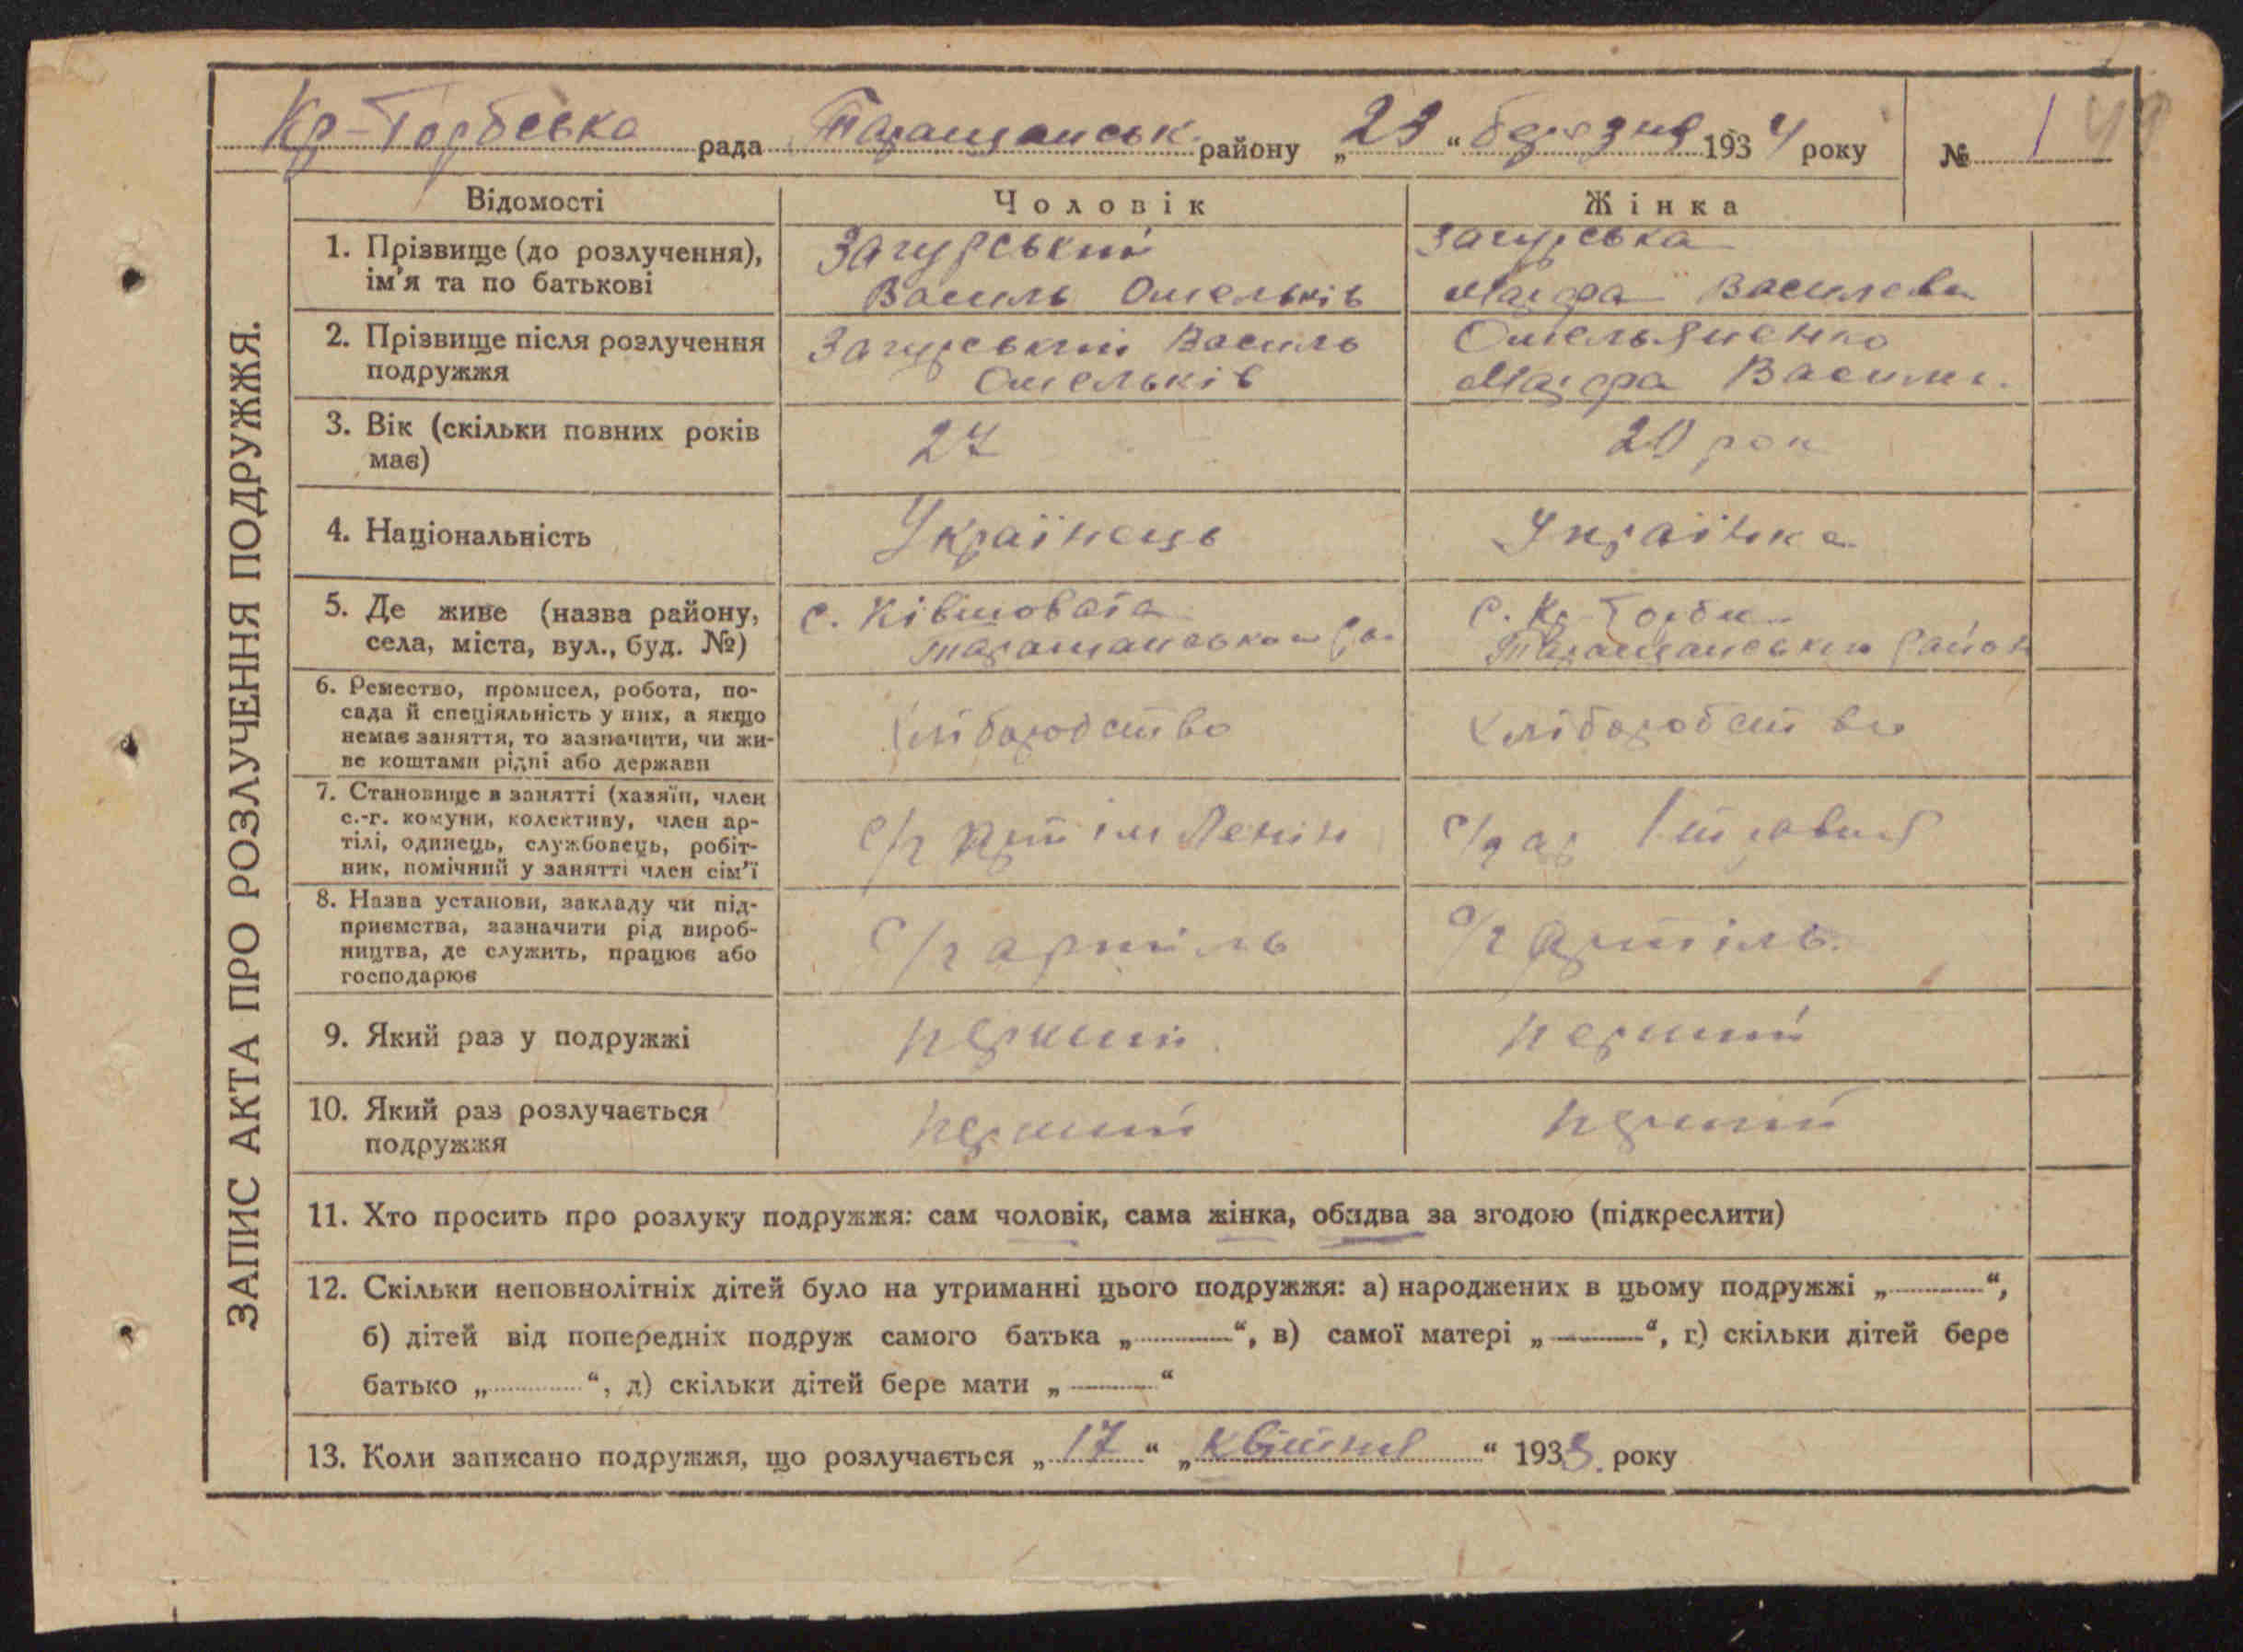 Кр-Торбська рада Таращанськ району „23“ березня 1934 року № 1 49
ЗАПИС АКТА ПРО РОЗЛУЧЕННЯ ПОДРУЖЖЯ.
Відомості Чоловік Жінка
1. Прізвище (до розлучення), ім'я та по батькові
Загурський
Василь Омельків
Загурська
Марфа Василева
2. Прізвище після розлучення подружжя
Загурський Василь
Омельків
Омельяненко
Марфа Василь.
3. Вік (скільки повних років має)
27
20 рок
4. Національність
Українець
Українка
5. Де живе (назва району, села, міста, вул., буд. №)
с. Ківшовата
Таращанського ра
с. Кр-Торби
Таращанського район
6. Ремество, промисел, робота, посада й спеціяльність у них, а якщо немає заняття, то зазначити, чи живе коштами рідні або держави
Хліборобство
Хліборобство
7. Становище в занятті (хазяїн, член с.-г. комуни, колективу, член артілі, одинець, службовець, робітник, помічний у занятті член сім'ї
с/г арт ім Ленін
с/г ар 1 травня
8. Назва установи, закладу чи підприємства, зазначити рід виробництва, де служить, працює або господарює
с/г артіль
с/г артіль.
9. Який раз у подружжі
перший
перший
10. Який раз розлучається подружжя
перший
перший
11. Хто просить про розлуку подружжя: сам чоловік, сама жінка, обидва за згодою (підкреслити)
12. Скільки неповнолітніх дітей було на утриманні цього подружжя: а) народжених в цьому подружжі „——“,
б) дітей від попередніх подруж самого батька „——“, в) самої матері „——“, г) скільки дітей бере
батько „——“, д) скільки дітей бере мати „——“
13. Коли записано подружжя, що розлучається „17“ „квітня“ 1933. року